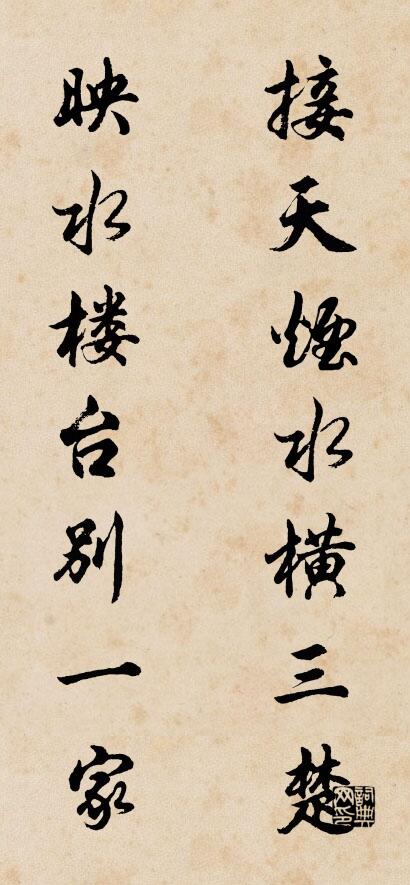 接天煙水横三楚
映水楼台别一家
词典网印